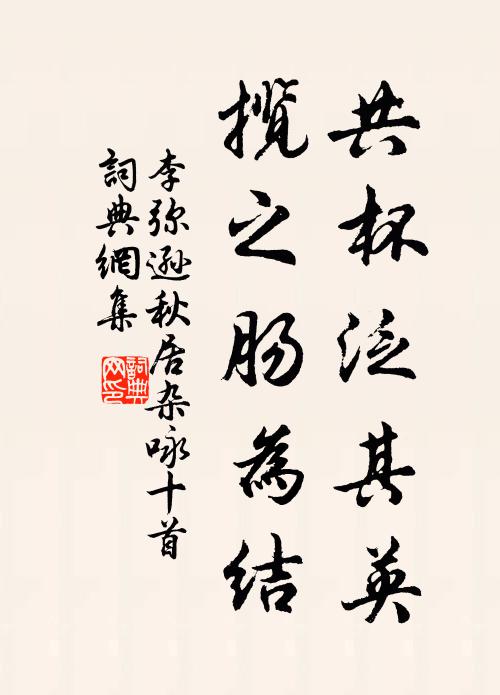 共杯泛其英
揽之肠为结
李弥逊秋居杂咏十首
词典网集
詞典
网印